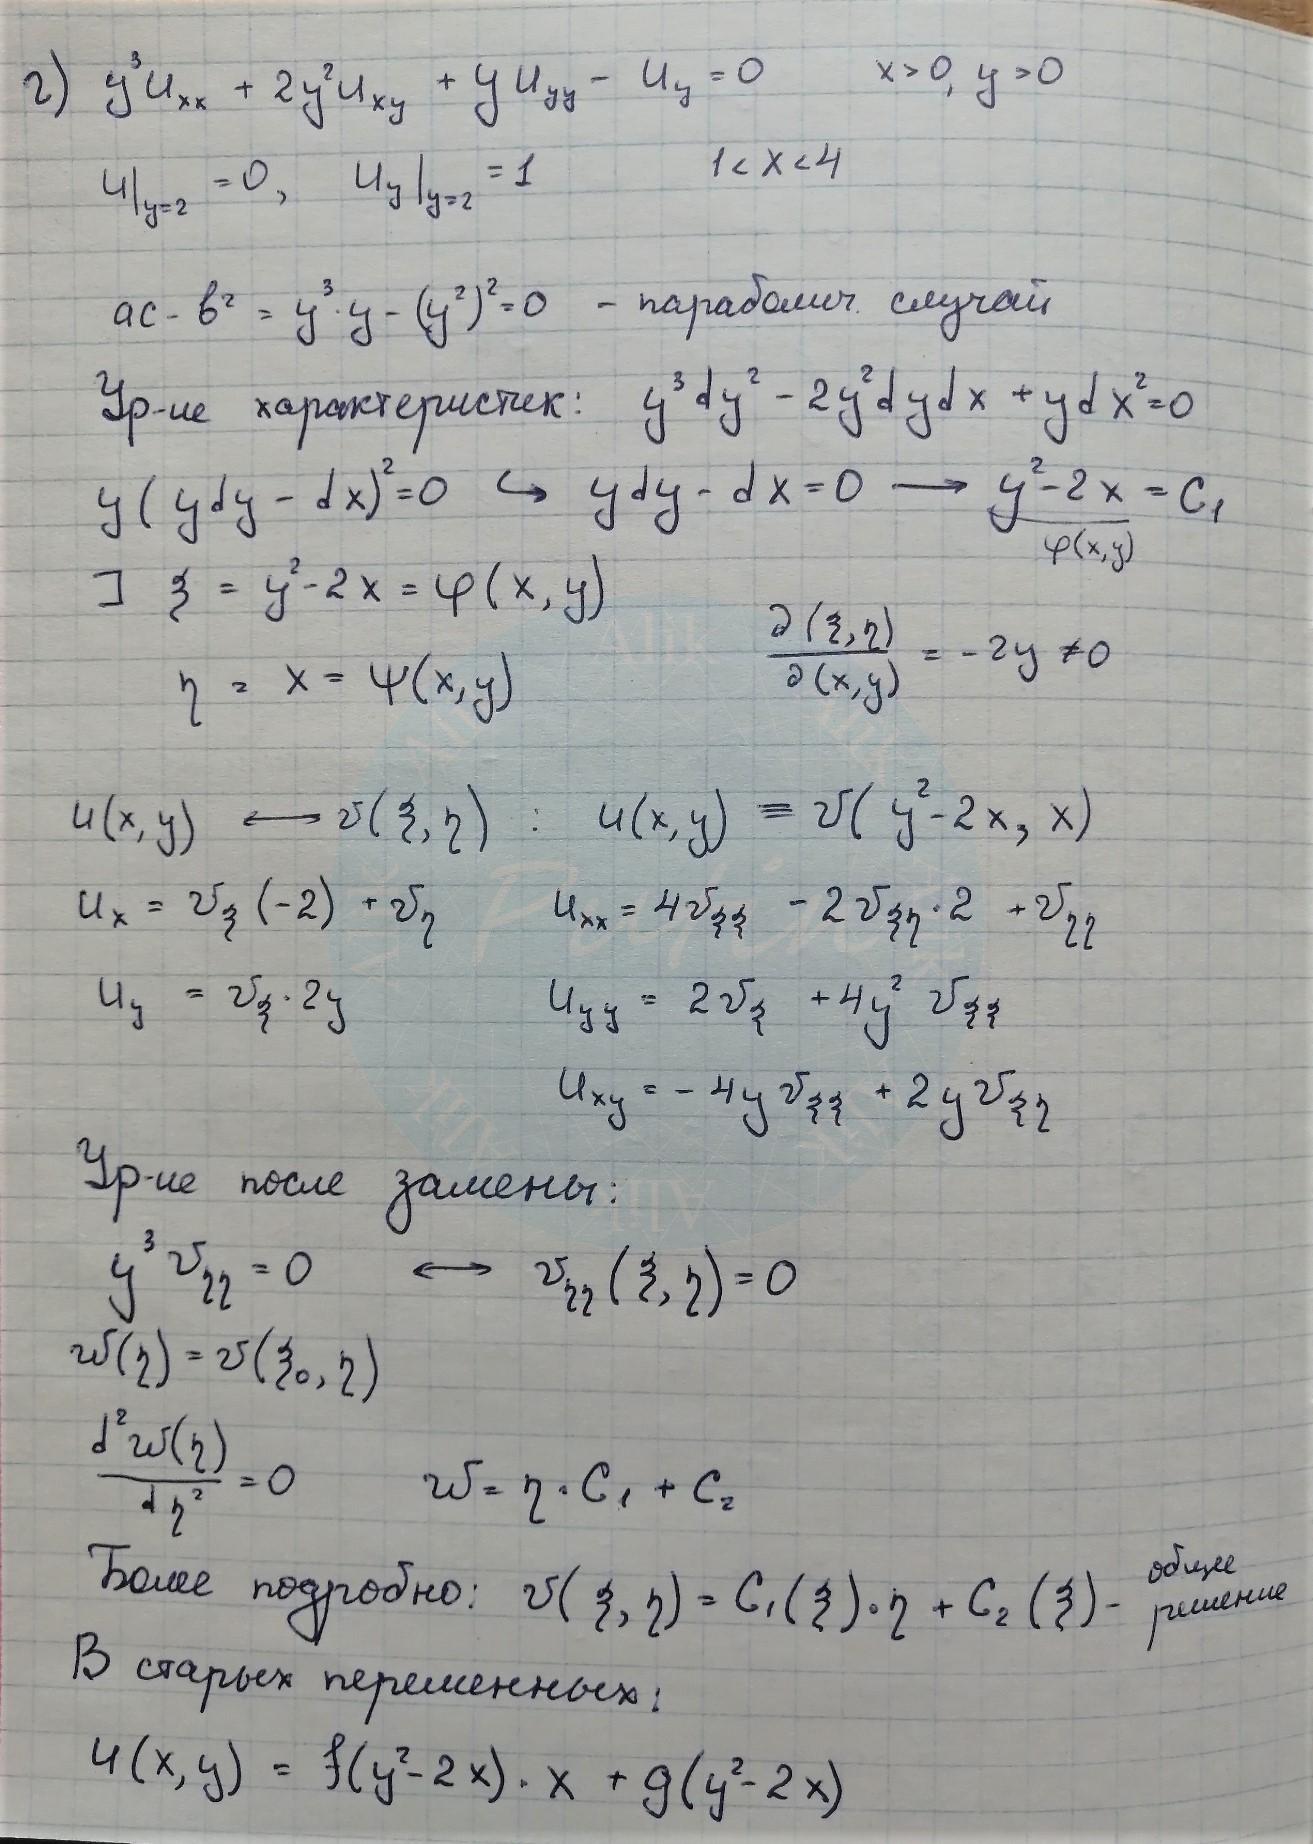 г) y³uₓₓ + 2y²uₓy + y uyy − uy = 0   x>0, y>0
u|y=2 = 0,   uy|y=2 = 1   1<x<4
ac - b² = y³·y − (y²)² = 0 − параболич. случай
Ур-ие характеристик: y³dy² − 2y²dydx + ydx² = 0
y(ydy − dx)² = 0 ↪ ydy − dx = 0 ⟶ y² − 2x = C₁
φ(x,y)
⊐ ξ = y² − 2x = φ(x, y)
η = x = ψ(x,y)   ∂(ξ,η)/∂(x,y) = −2y ≠ 0
u(x,y) ⟷ v(ξ,η) : u(x,y) ≡ v(y² − 2x, x)
uₓ = vξ(−2) + vη   uₓₓ = 4vξξ − 2vξη·2 + vηη
uy = vξ·2y   uyy = 2vξ + 4y² vξξ
uₓy = −4y vξξ + 2y vξη
Ур-ие после замены:
y³ vηη = 0 ⟷ vηη(ξ, η) = 0
w(η) = v(ξ₀, η)
d²w(η)/dη² = 0   w = η·C₁ + C₂
Более подробно: v(ξ, η) = C₁(ξ)·η + C₂(ξ) − общее решение
В старых переменных:
u(x,y) = f(y² − 2x)·x + g(y² − 2x)
Alik
Alik
Alik
Alik
Alik
Alik
Alik